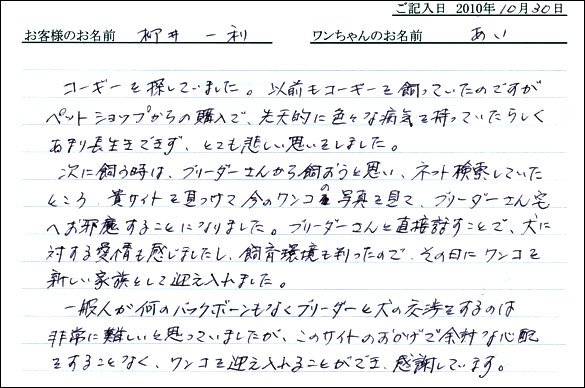 ご記入日 2010年10月30日
お客様のお名前 柳井 一利 ワンちゃんのお名前 あい
コーギーを探していました。以前もコーギーを飼っていたのですが
ペットショップからの購入で、先天的に色々な病気を持っていたらしく
あまり長生きできず、とても悲しい思いをしました。
次に飼う時は、ブリーダーさんから飼おうと思い、ネット検索していた
ところ、貴サイトを見つけて今のワンコの写真を見て、ブリーダーさん宅
へお邪魔することになりました。ブリーダーさんと直接話すことで、犬に
対する愛情も感じましたし、飼育環境も判ったので、その日にワンコを
新しい家族として迎え入れました。
一般人が何のバックボーンもなくブリーダーと犬の交渉をするのは
非常に難しいと思っていましたが、このサイトのおかげで余計な心配
をすることなく、ワンコを迎え入れることができ、感謝しています。